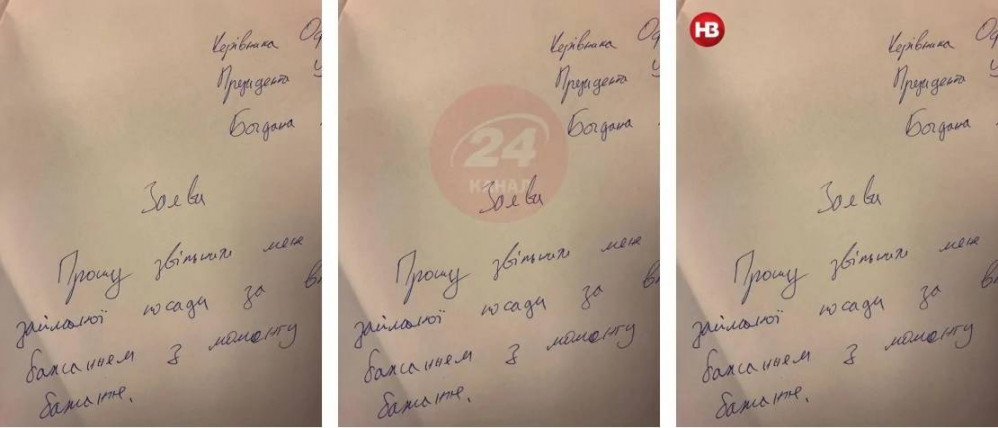 Керівника Оф
Президента У
Богдана
Заява
Прошу звільнити мене
займаної посади за вл
бажаннем з моменту
24
КАНАЛ
Керівника Оф
Президента У
Богдана
Заява
Прошу звільнити мене
займаної посади за вл
бажаннем з моменту
НВ
Керівника Оф
Президента У
Богдана
Заява
Прошу звільнити мене
займаної посади за вл
бажаннем з моменту